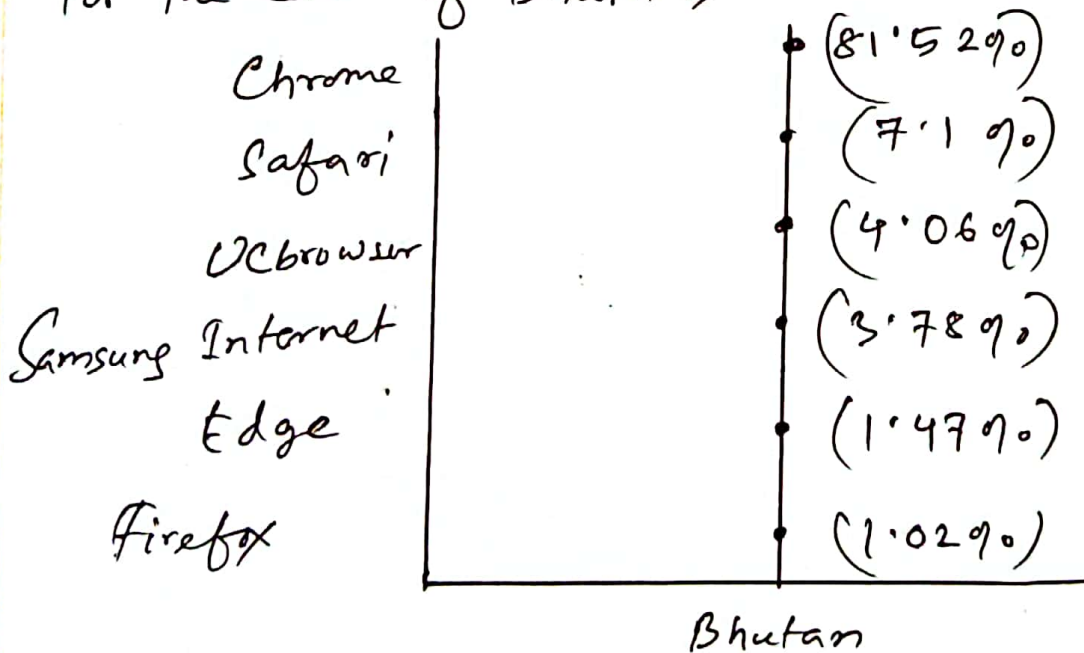 for the
Chrome (81.52%)
Safari (7.1%)
UCbrowser (4.06%)
Samsung Internet (3.78%)
Edge (1.47%)
Firefox (1.02%)
Bhutan